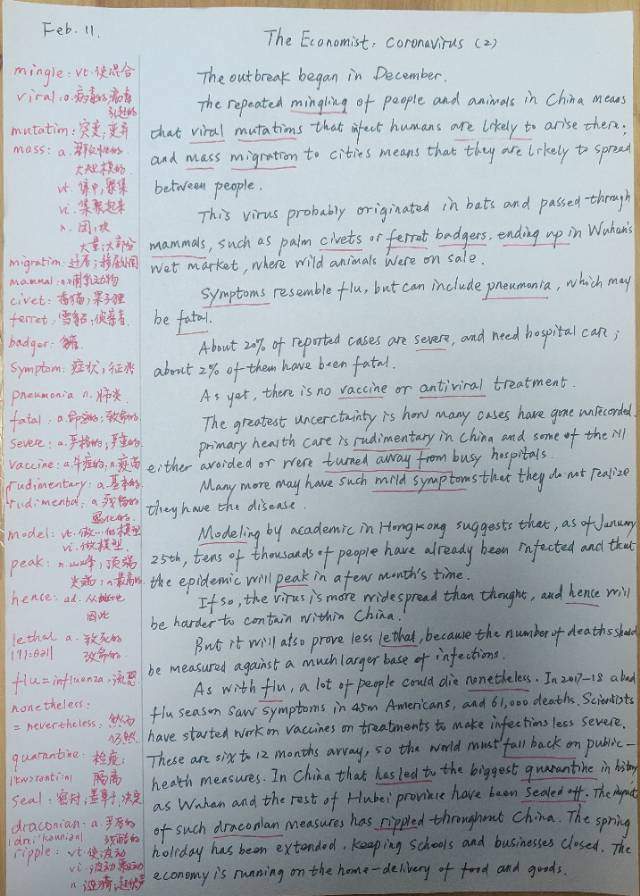 Feb. 11.
The Economist, coronavirus (2)
mingle: vt. 使混合
viral: a. 病毒的, 病毒
引起的
mutation: 突变, 变异
mass: a. 群众性的
大规模的
vt. 集中, 聚集
vi. 聚集起来
n. 团, 块
大量; 大部分
migration: 迁居;
mammal: 哺乳动物
civet: 香猫; 果子狸
ferret: 雪貂, 侦察者
badger: 獾
Symptom: 症状; 征兆
pneumonia n. 肺炎
fatal. a. 命定的; 致命的
severe: a. 严格的, 严重的
vaccine: a. 牛痘的, n. 疫苗
rudimentary: a. 基本的
rudimental: a. 残留的
退化的
model: vt. 做…的模型
vi. 做模型
peak: n. 山峰; 顶端
尖端; a. 最高的
hence: ad. 从此地
因此
lethal a. 致死的
致命的
flu = influenza, 流感
nonetheless:
= nevertheless, 然而
仍然
quarantine: 检疫;
隔离
seal: 密封; 盖章于, 决定
draconian: a. 严厉的
残酷的
ripple: vt. 使波动
vi. 波动
n.
The outbreak began in December.
The repeated mingling of people and animals in China means
that viral mutations that infect humans are likely to arise there;
and mass migration to cities means that they are likely to spread
between people.
This virus probably originated in bats and passed through
mammals, such as palm civets or ferret badgers, ending up in Wuhan's
wet market, where wild animals were on sale.
Symptoms resemble flu, but can include pneumonia, which may
be fatal.
About 20% of reported cases are severe, and need hospital care;
about 2% of them have been fatal.
As yet, there is no vaccine or antiviral treatment.
The greatest uncertainty is how many cases have gone unrecorded.
primary health care is rudimentary in China and some of the ill
either avoided or were turned away from busy hospitals.
Many more may have such mild symptoms that they do not realize
they have the disease.
Modeling by academic in Hongkong suggests that, as of January
25th, tens of thousands of people have already been infected and that
the epidemic will peak in a few month's time.
If so, the virus is more widespread than thought, and hence will
be harder to contain within China.
But it will also prove less lethal, because the number of deaths should
be measured against a much larger base of infections.
As with flu, a lot of people could die nonetheless. In 2017-18 a bad
flu season saw symptoms in 45m Americans, and 61,000 deaths. Scientists
have started work on vaccines on treatments to make infections less severe.
These are six to 12 months array, so the world must fall back on public-
health measures. In China that has led to the biggest quarantine in history
as Wuhan and the rest of Hubei province have been sealed off. The impact
of such draconian measures has rippled throughout China. The spring
holiday has been extended, keeping schools and businesses closed. The
economy is running on the home-delivery of food and goods.